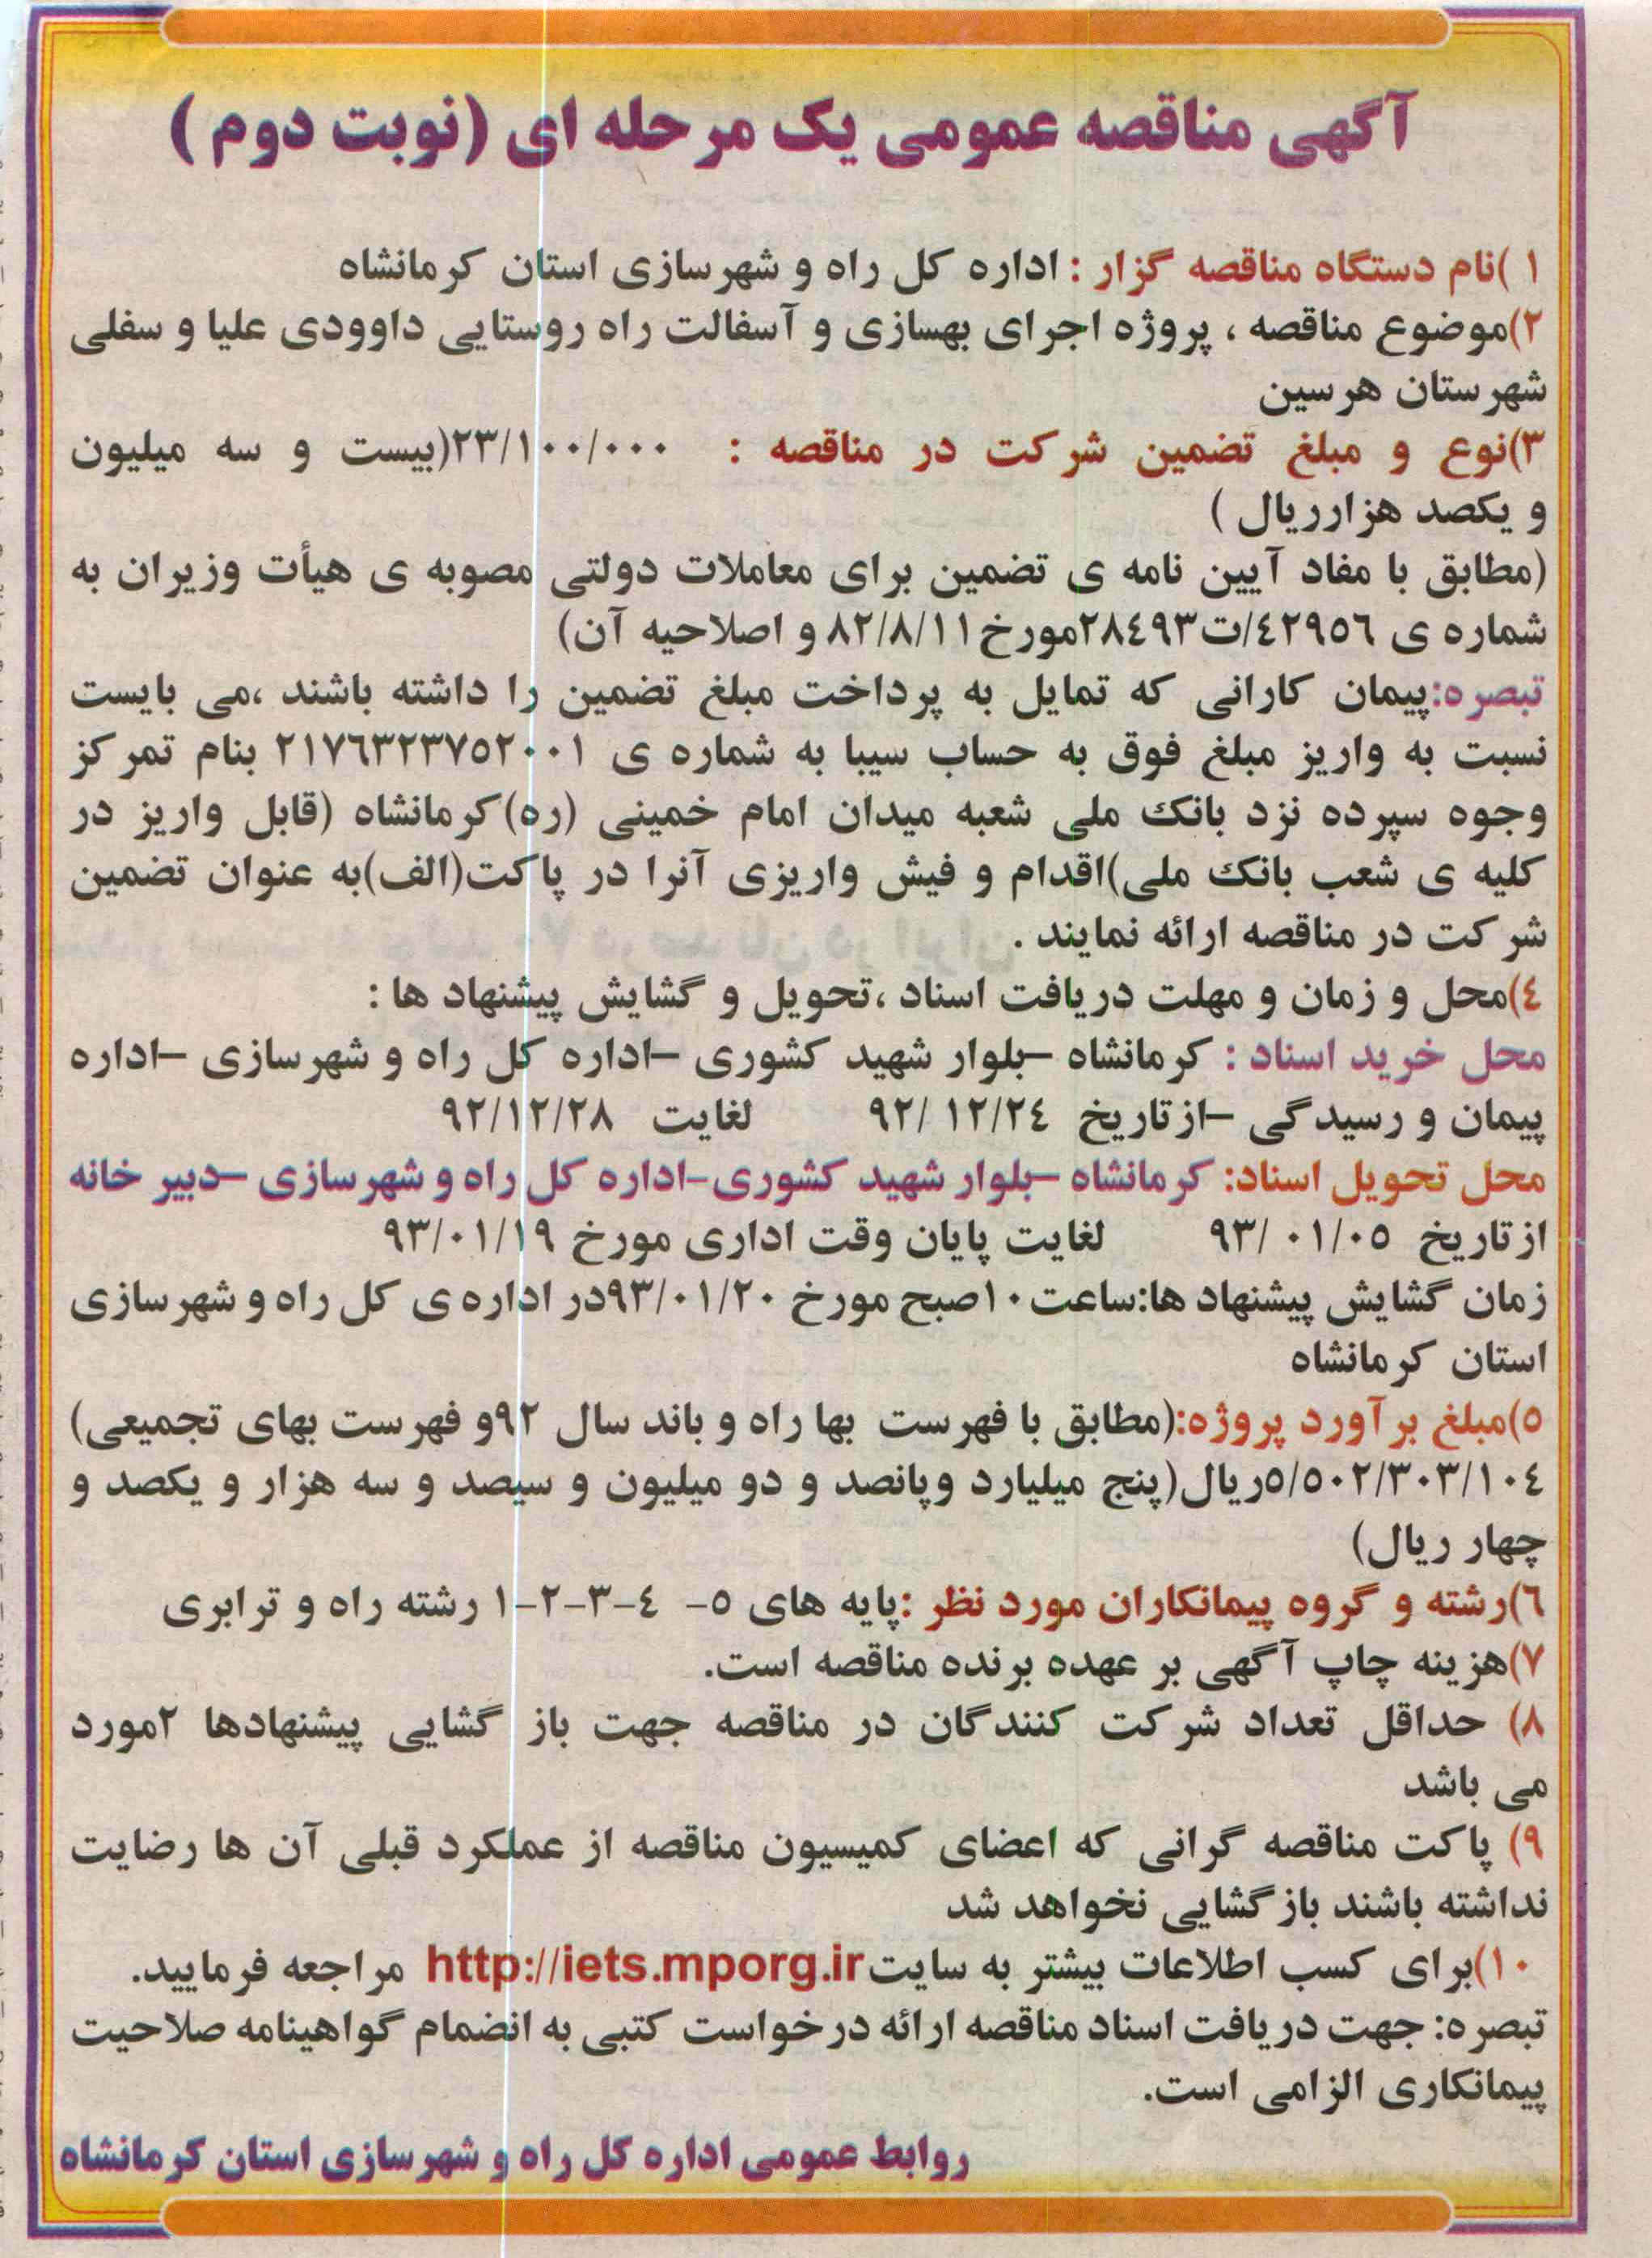 آگهی مناقصه عمومی یک مرحله ای (نوبت دوم )
۱ )نام دستگاه مناقصه گزار : اداره کل راه و شهرسازی استان کرمانشاه
۲)موضوع مناقصه ، پروژه اجرای بهسازی و آسفالت راه روستایی داوودی علیا و سفلی
شهرستان هرسین
۳)نوع و مبلغ تضمین شرکت در مناقصه : ۲۳/۱۰۰/۰۰۰(بیست و سه میلیون
و یکصد هزارریال )
(مطابق با مفاد آیین نامه ی تضمین برای معاملات دولتی مصوبه ی هیأت وزیران به
شماره ی ٤۲۹٥٦/ت۲۸٤۹۳مورخ۸۲/۸/۱۱ و اصلاحیه آن)
تبصره:پیمان کارانی که تمایل به پرداخت مبلغ تضمین را داشته باشند ،می بایست
نسبت به واریز مبلغ فوق به حساب سیبا به شماره ی ۲۱۷٦۳۲۳۷٥۲۰۰۱ بنام تمرکز
وجوه سپرده نزد بانک ملی شعبه میدان امام خمینی (ره)کرمانشاه (قابل واریز در
کلیه ی شعب بانک ملی)اقدام و فیش واریزی آنرا در پاکت(الف)به عنوان تضمین
شرکت در مناقصه ارائه نمایند .
٤)محل و زمان و مهلت دریافت اسناد ،تحویل و گشایش پیشنهاد ها :
محل خرید اسناد : کرمانشاه –بلوار شهید کشوری –اداره کل راه و شهرسازی –اداره
پیمان و رسیدگی –ازتاریخ ۹۲/ ۱۲/۲٤ لغایت ۹۲/۱۲/۲۸
محل تحویل اسناد: کرمانشاه –بلوار شهید کشوری-اداره کل راه و شهرسازی –دبیر خانه
ازتاریخ ۹۳/ ۰۱/۰٥ لغایت پایان وقت اداری مورخ ۹۳/۰۱/۱۹
زمان گشایش پیشنهاد ها:ساعت۱۰صبح مورخ ۹۳/۰۱/۲۰در اداره ی کل راه و شهرسازی
استان کرمانشاه
٥)مبلغ برآورد پروژه:(مطابق با فهرست بها راه و باند سال ۹۲و فهرست بهای تجمیعی)
٥/٥۰۲/۳۰۳/۱۰٤ریال(پنج میلیارد وپانصد و دو میلیون و سیصد و سه هزار و یکصد و
چهار ریال)
٦)رشته و گروه پیمانکاران مورد نظر :پایه های ٥- ٤-۳-۲-۱ رشته راه و ترابری
۷)هزینه چاپ آگهی بر عهده برنده مناقصه است.
۸) حداقل تعداد شرکت کنندگان در مناقصه جهت باز گشایی پیشنهادها ۲مورد
می باشد
۹) پاکت مناقصه گرانی که اعضای کمیسیون مناقصه از عملکرد قبلی آن ها رضایت
نداشته باشند بازگشایی نخواهد شد
۱۰)برای کسب اطلاعات بیشتر به سایت http://iets.mporg.ir مراجعه فرمایید.
تبصره: جهت دریافت اسناد مناقصه ارائه درخواست کتبی به انضمام گواهینامه صلاحیت
پیمانکاری الزامی است.
روابط عمومی اداره کل راه و شهرسازی استان کرمانشاه